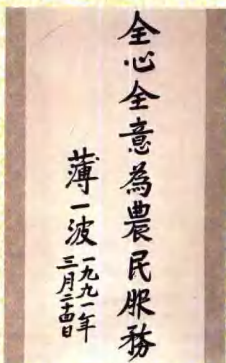 全心全意為農民服務
薄一波
一九九一年
三月二十四日